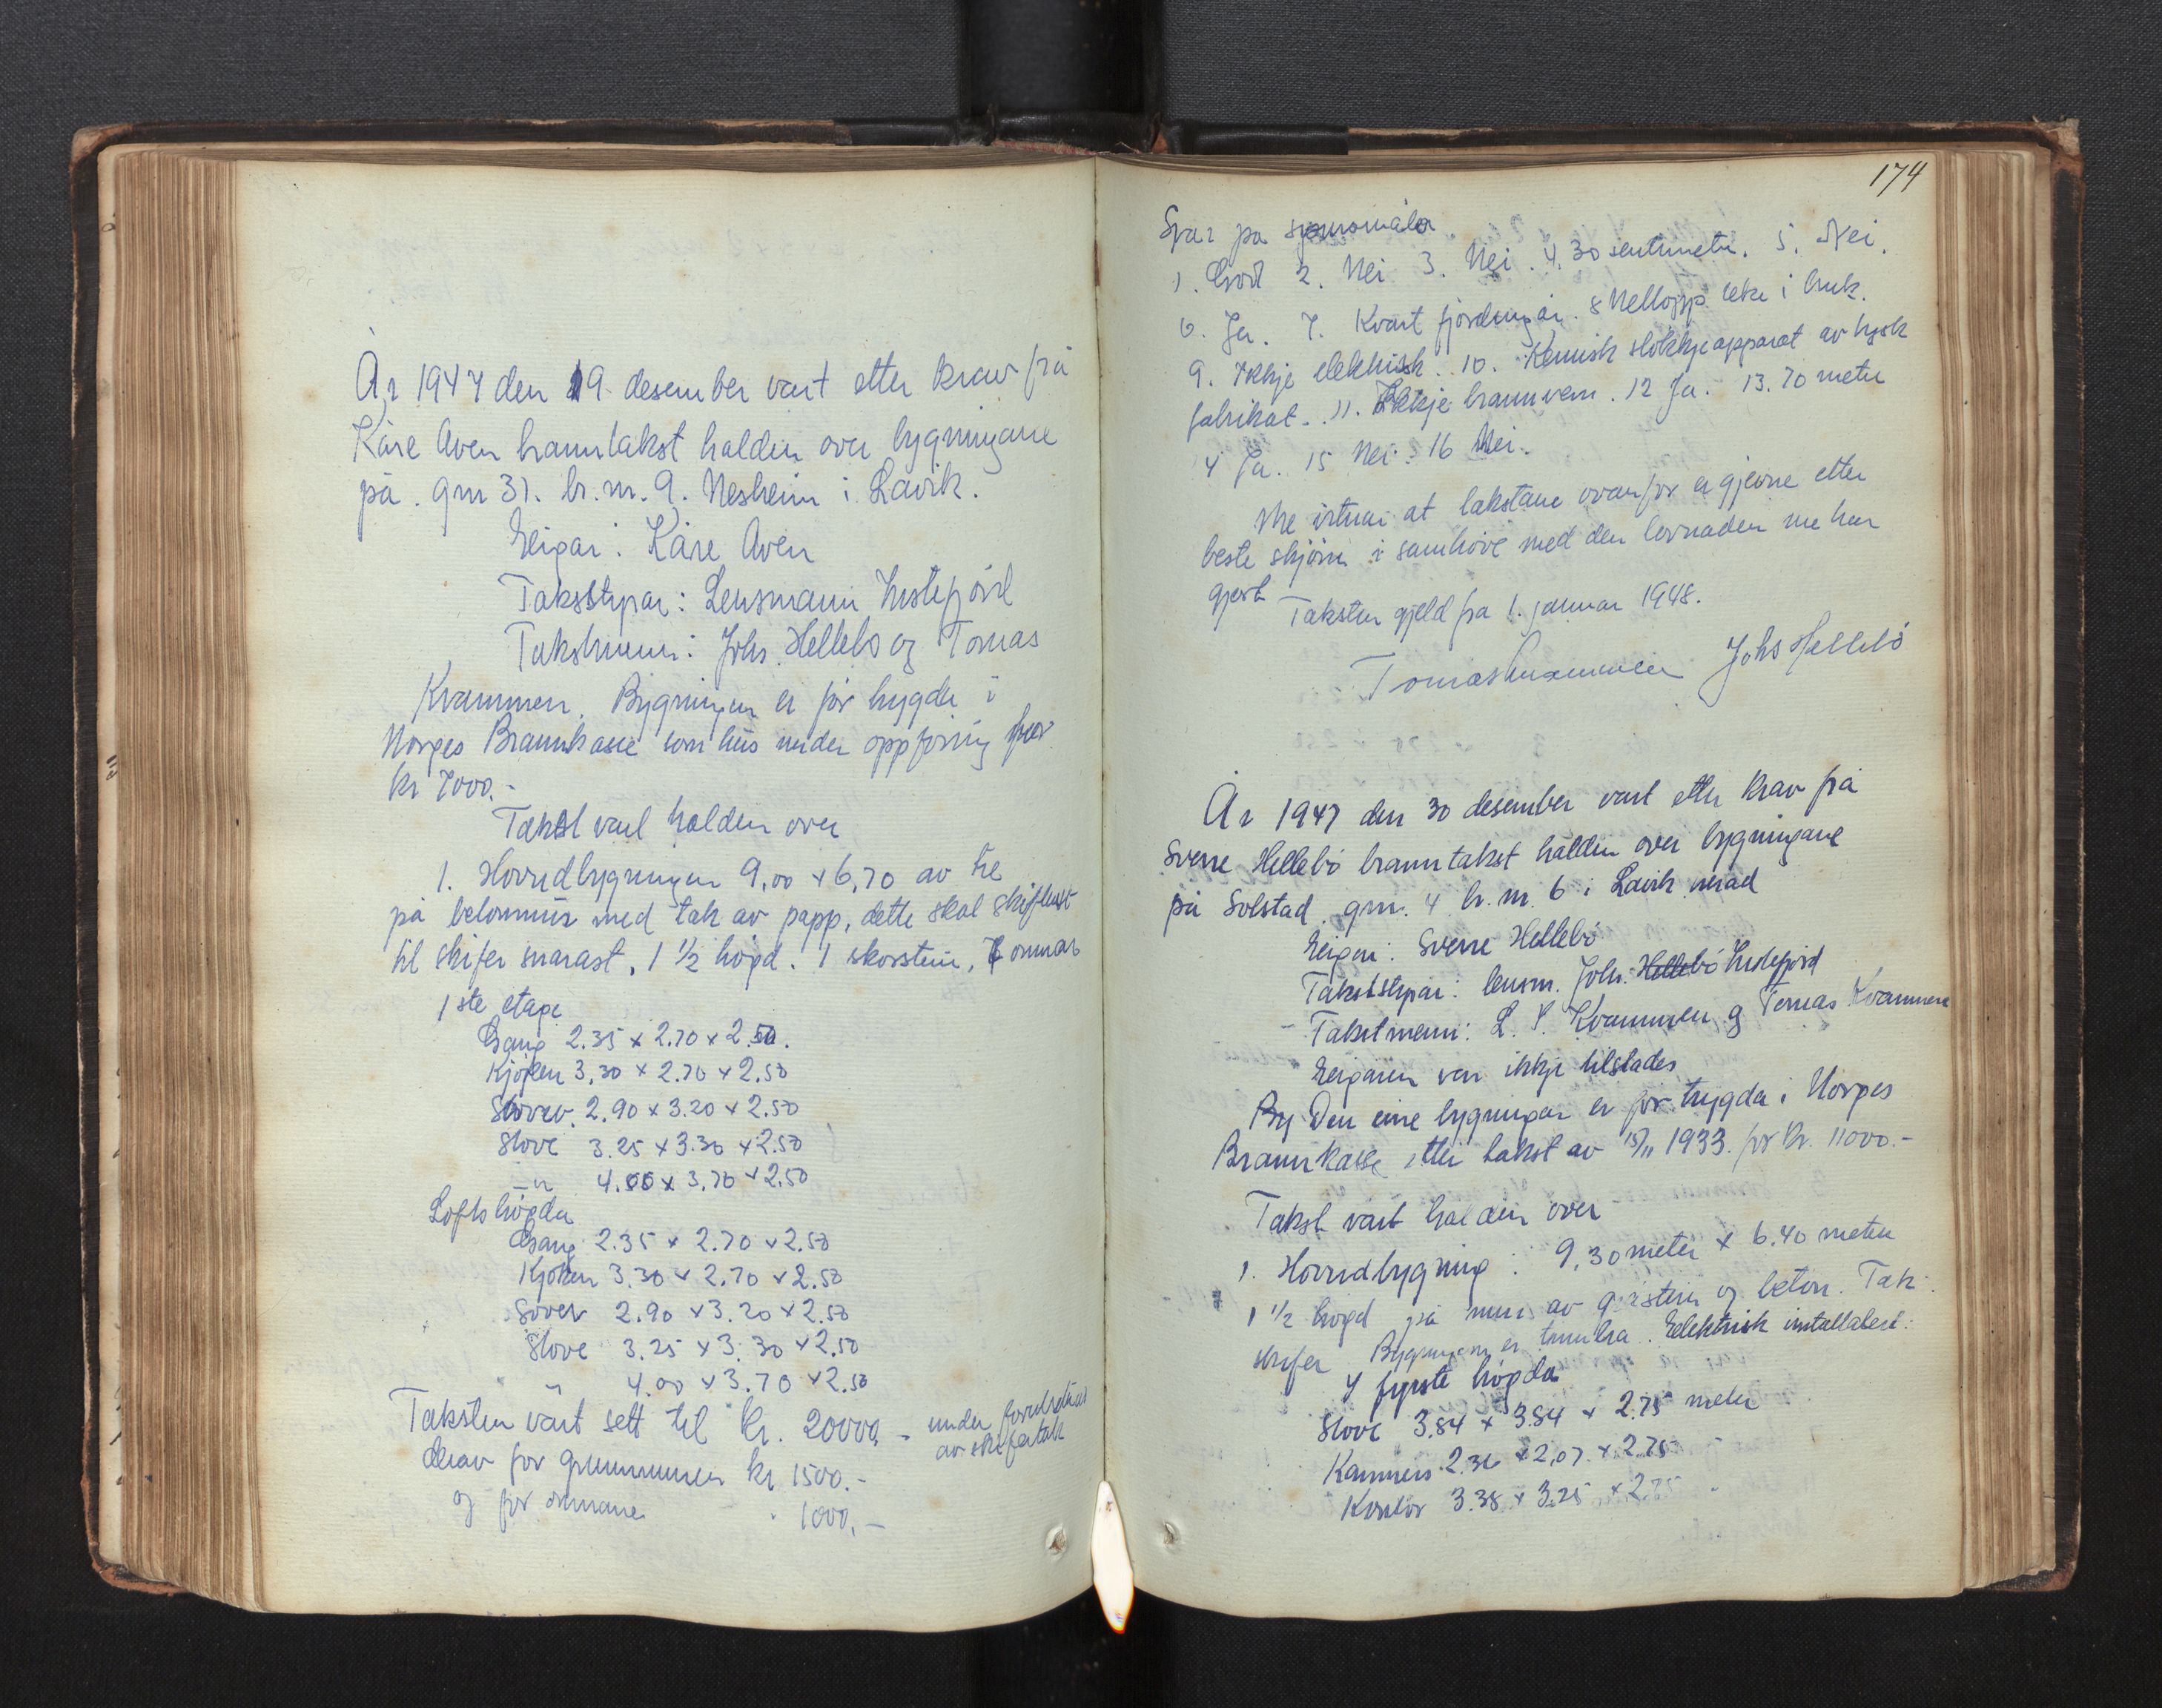 År 1947 den 19 desember vart etter krav frå
Kåre Aven branntakst halden over bygningane
på gnr 31. br. nr. 9. Nesheim i Lavik.
Eigar: Kåre Aven
Takststyrar: Lensmann Institefjord
Takstmenn: Johs. Hellebo og Tomas
Kvammen. Bygningen er før trygda i
Norges Brannkasse som hus under oppføring for
kr 7000.-
Takst vart halden over
1. Hovudbygningen 9,00 x 6,70 av tre
på betonmur med tak av papp, dette skal
til skifer snarast, 1 1/2 högd. 1 skorstein, omnar
1ste etage
Gang 2.35 x 2.70 x 2.50.
Kjøken 3,30 x 2.70 x 2.50
2.90 x 3.20 x 2.50
Stove 3.25 x 3.30 x 2.50
-"- 4.00 x 3.70 x 2.50
Loftshögda
Gang 2.35 x 2.70 x 2.50
Kjöken 3.30 x 2.70 x 2.50
Sovev 2.90 x 3.20 x 2.50
Stove 3.25 x 3.30 x 2.50
" 4.00 x 3.70 x 2.50
Taksten vart sett til kr. 20000.- under forutsetnad
av skifertak
derav for grunnmuren kr 1500.-
og for omnane " 1000.-
174
Svar på spursmåla
1. God 2. Nei 3. Nei. 4. 30 sentimeter. 5. Nei.
6. Ja. 7. Kvart fjordungår. 8 i bruk.
9. Ikkje elektrisk. 10. Kemisk slökkjeapparat av tysk
fabrikat. 11. Ikkje brannvern. 12 Ja. 13. 70 meter
4 Ja. 15 Nei. 16 Nei.
Me vitnar at takstane ovanfor er gjevne etter
beste skjönn i samhöve med den lovnaden me har
gjort
Taksten gjeld frå 1. januar 1948.
Tomas Kvammen Johs Hellebö
År 1947 den 30 desember vart etter krav frå
Sverre Hellebö branntakst halden over bygningane
på Solstad. gnr. 4 br. nr. 6 i Lavik herad
Eigar: Sverre Hellebö
Takststyrar: lensm. Johs. Hellebö Institefjord
- Takstmenn: L. P. Kvammen og Tomas Kvammen
Eigaren var ikkje tilstades
By Den eine bygningen er før trygda i Norges
Brannkasse etter takst av 15/11 1933 for kr. 11000.-
Takst vart halden over
1. Hovudbygning: 9,30 meter x 6.40 meter
1 1/2 högd på mur av gråstein og beton. Tak:
skifer Bygningen er tømbra. Elektrisk installatert:
I fyrste högda
Stove 3.84 x 3.84 x 2.75 meter
Kammers 2.36 x 2,07 x 2.75
Kontor 3.38 x 3.25 x 2.75